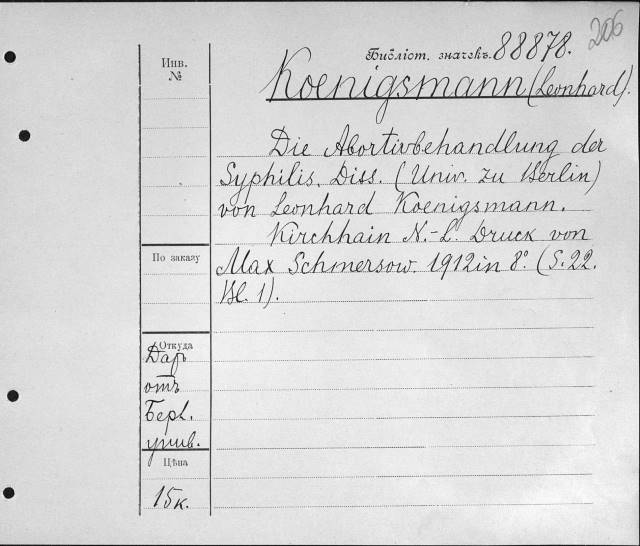 206
Библіот. значекъ. 88878.
Инв.
№
Koenigsmann (Leonhard).
Die Abortivbehandlung der
Syphilis. Diss. (Univ. zu Berlin)
von Leonhard Koenigsmann.
Kirchhain N.-L. Druck von
По заказу
Max Schmersow. 1912 in 8°. (S. 22.
Bl. 1).
Откуда
Даръ
отъ
Берл.
унив.
Цѣна
15к.